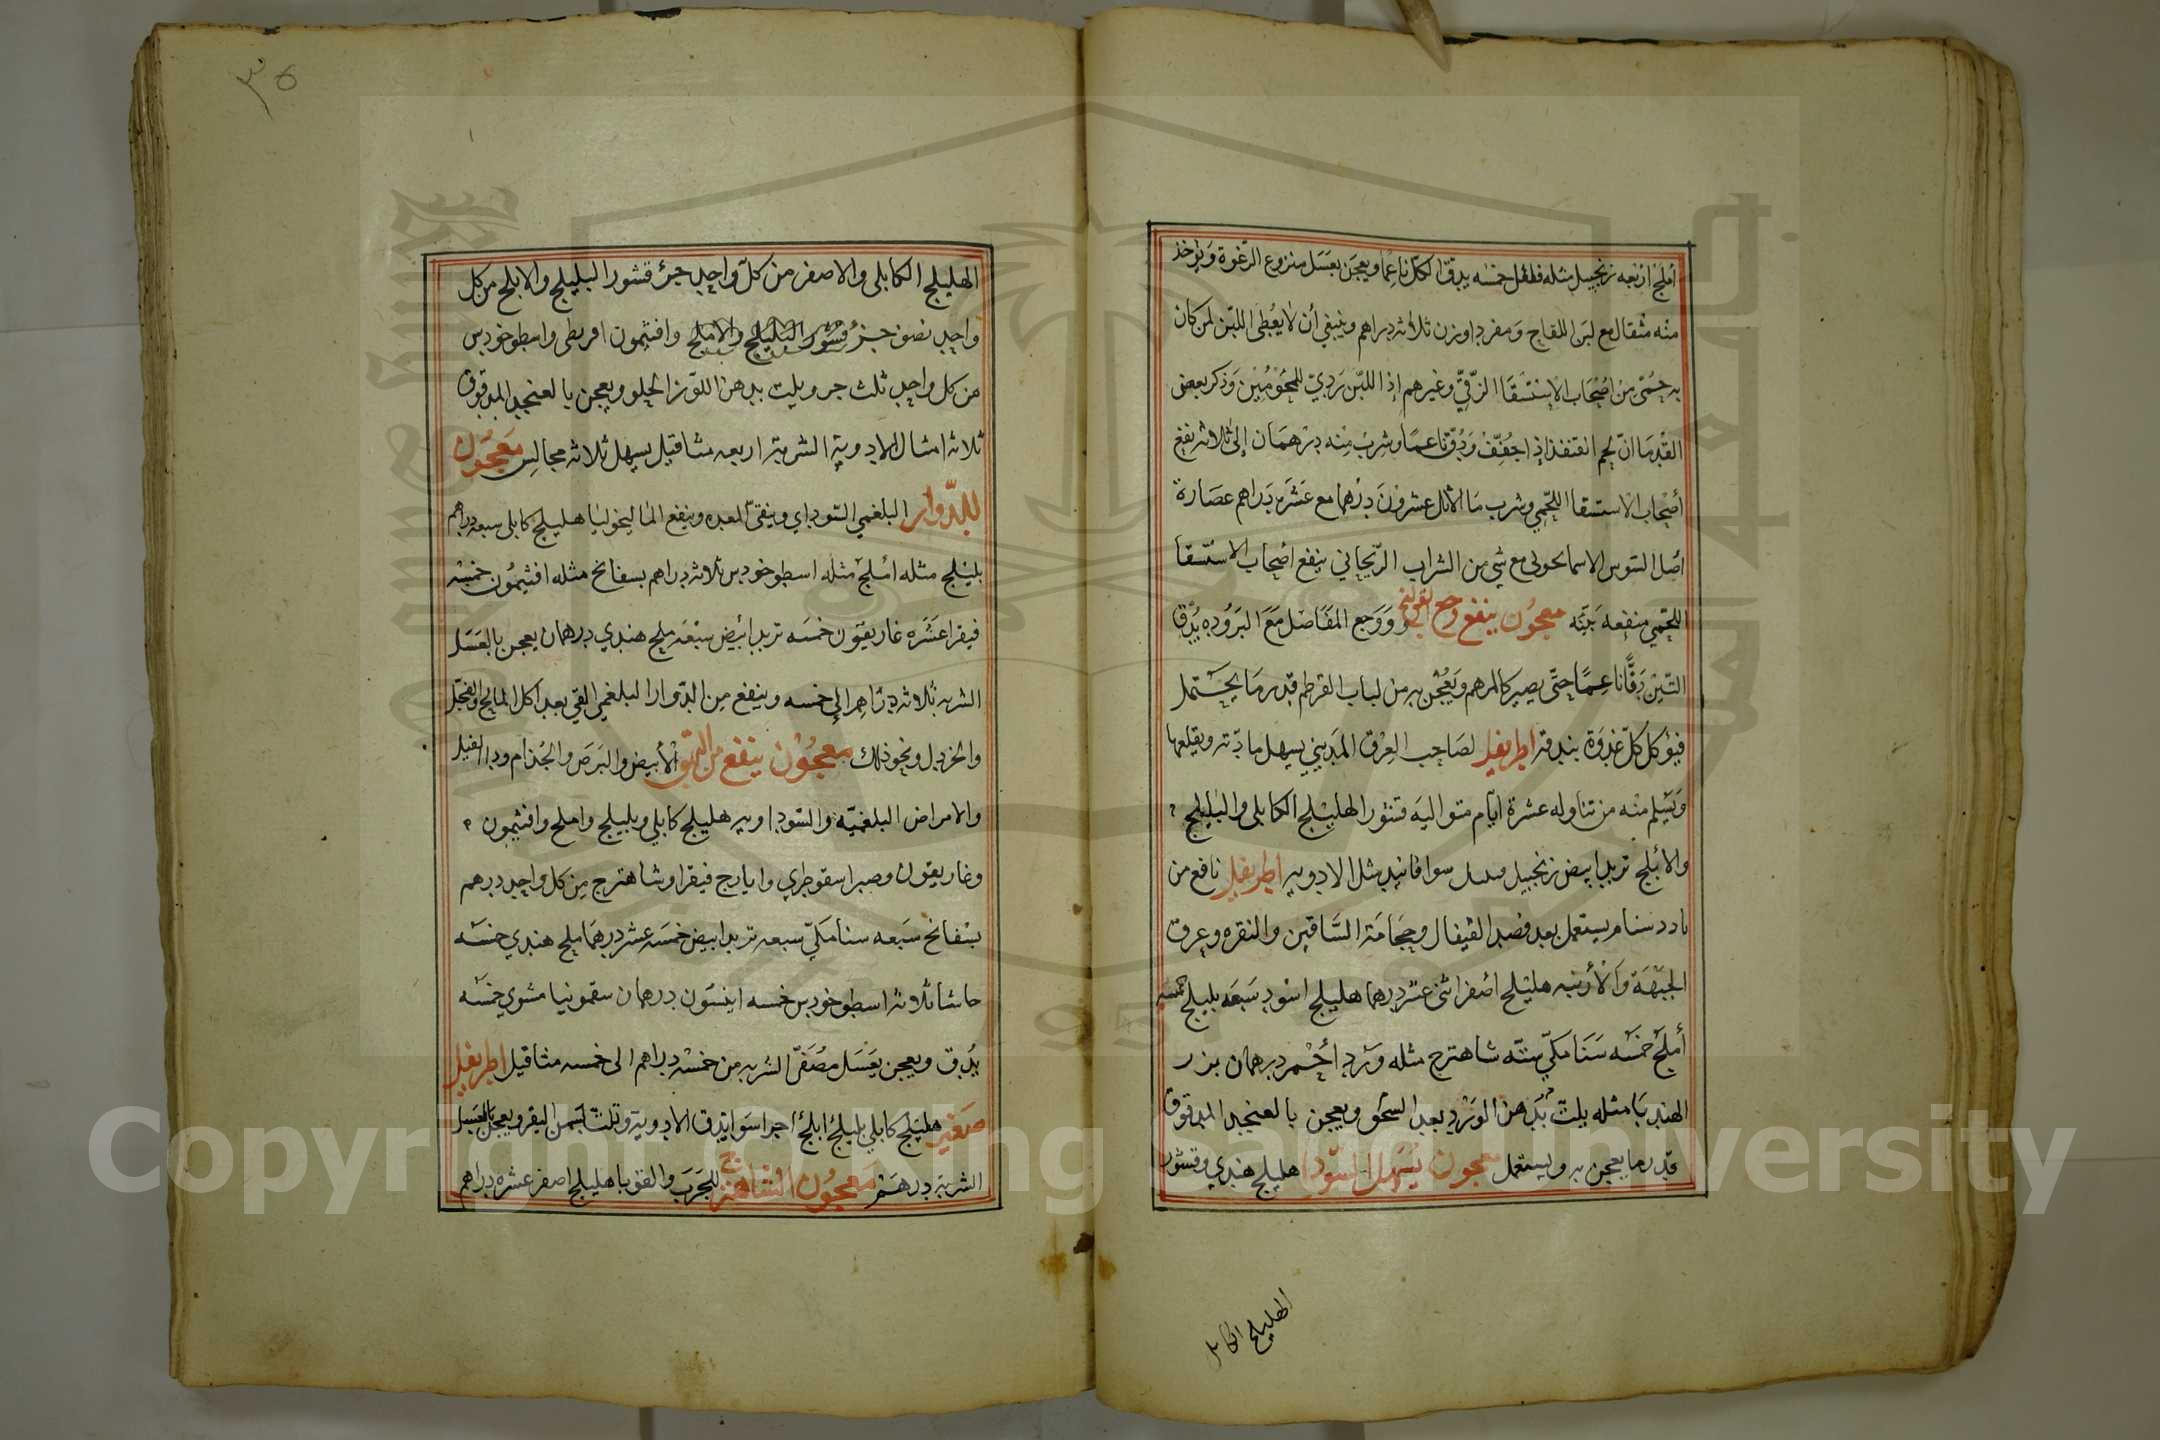 أملج أربعه زنجبيل مثله فلفل خمسه يدق الكل ناعما ويعجن بعسل منزوع الرغوة ويؤخذ
منه مثقال مع لبن اللقاح ومفردا وزن ثلاثه دراهم وينبغي أن لا يعطى اللبن لمن كان
به حمى من أصحاب الاستسقا الزقي وغيرهم إذ اللبن ردي للمحمومين وذكر بعض
القدما ان لحم القنفذ إذا جفف ودق ناعما وشرب منه درهمان إلى ثلاثه نفع
أصحاب الاستسقا اللحمي وشرب ما الاثل عشرون درهما مع عشره دراهم عصارة
أصل السوس الاسمانجوني مع شي من الشراب الريحاني ينفع أصحاب الاستسقا
اللحمي منفعه بينه معجون ينفع وجع القولنج ووجع المفاصل مع البروده يدق
التين دقا ناعما حتى يصير كالمرهم ويعجن به من لباب القرطم قدر ما يحتمل
فيؤكل كل غدوة بندقه اطريفل لصاحب العرق المديني يسهل مادته ويقلعها
ويسلم منه من تناوله عشرة أيام متواليه قشور الهليلج الكابلي والبليلج
والأملج تربد ابيض زنجبيل سوا فانيد مثل الادويه اطريفل نافع من
بادد سنام يستعمل بعد فصد القيفال وحجامة الساقين والنقره وعرق
الجبهة والأرنبه هليلج أصفر اثنى عشر درهما هليلج اسود سبعه بليلج خمسه
أملج خمسه سنا مكي سته شاهترج مثله ورد أحمر درهمان بزر
الهندبا مثله يلت بدهن الورد بعد السحق ويعجن بالعنجد المدقوق
قدر ما يعجن به ويستعمل معجون يسهل السودا هليلج هندي وقشور
الهليلج الكابلي
٣٥
الهليلج الكابلي والاصفر من كل واحد جزؤ قشور البليلج والاملج من كل
واحد نصف جزؤ قشور البليلج والاملج وافتيمون اقريطي واسطوخودس
من كل واحد ثلث جزو يلت بدهن اللوز الحلو ويعجن بالعنجد المدقوق
ثلاثه امثال الادوية الشربة اربعه مثاقيل يسهل ثلاثه مجالس معجون
للدوار البلغمي السوداي وينقي المعده وينفع الماليخوليا هليلج كابلي سبعه دراهم
بليلج مثله أملج مثله اسطوخودس ثلاثه دراهم بسفانج مثله افتيمون خمسه
فيقرا عشره غاريقون خمسه تربد أبيض سبعه ملح هندي درهمان يعجن بالعسل
الشربه ثلاثه دراهم إلى خمسه وينفع من الدوار البلغمي القي بعد اكل المالح والفجل
والخردل ونحو ذلك معجون ينفع من البهق الأبيض والبرص والجذام ودا الفيل
والامراض البلغميه والسوداويه هليلج كابلي وبليلج واملج وافتيمون
وغاريقون وصبر اسقوطري وايارج فيقرا وشاهترج من كل واحد درهم
بسفانج سبعه سنا مكي سبعه تربد ابيض خمسه عشر درهما ملح هندي خمسه
حاشا ثلاثه اسطوخودس خمسه اينسون درهمان سقمونيا مشوي خمسه
يدق ويعجن بعسل مصفى الشربه من خمسه دراهم الى خمسه مثاقيل اطريفل
صغير هليلج كابلي بليلج املج اجزا سوا يدق الادوية وتلت بسمن البقر ويعجن بالعسل
الشربه درهم معجون الشاهترج للجرب والقوبا هليلج اصفر عشره دراهم
Copyright © King Saud University